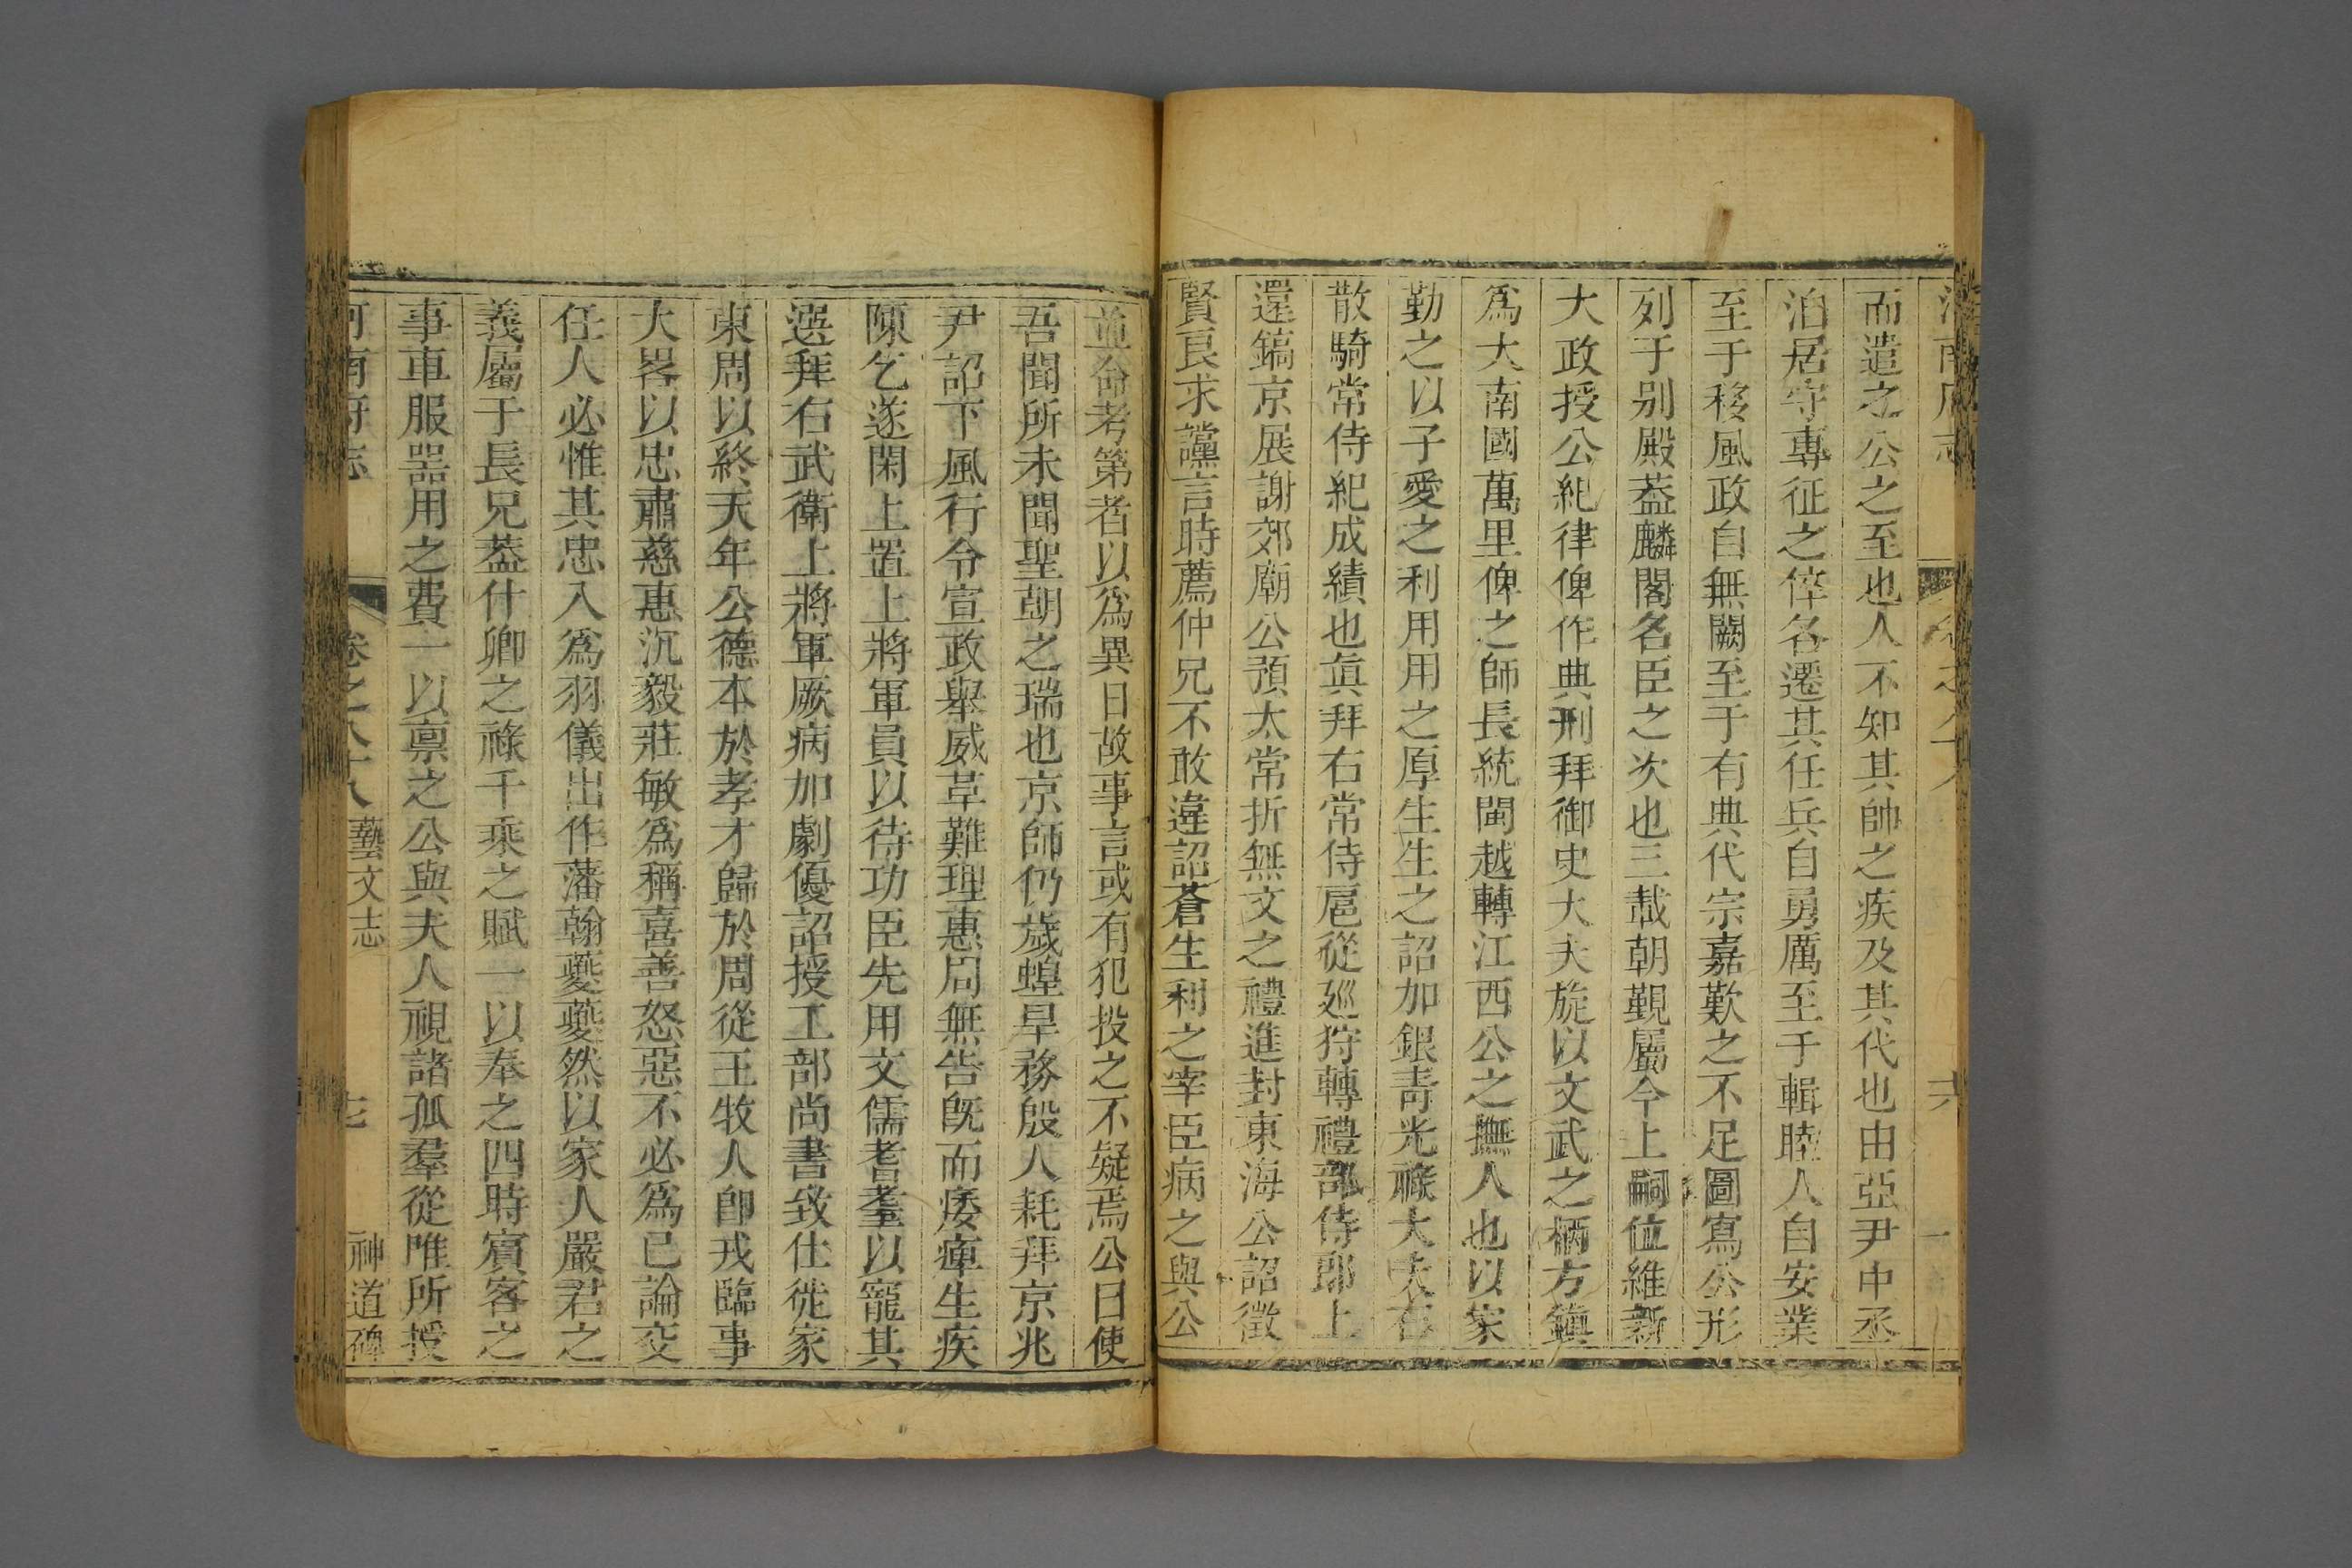 而遣之公之至也人不知其帥之疾及其代也由亞尹中丞
洎居守專征之倅名遷其任兵自勇厲至于輯睦人自安業
至于移風政自無闕至于有典代宗嘉歎之不足圖寫公形
列于別殿葢麟閣名臣之次也三載朝覲屬今上嗣位維新
大政授公紀律俾作典刑拜御史大夫旋以文武之柄方鎮
爲大南國萬里俾之師長統閩越轉江西公之撫人也以家
勤之以子愛之利用用之厚生生之詔加銀青光祿大夫右
散騎常侍紀成績也眞拜右常侍扈從巡狩轉禮部侍郎上
還鎬京展謝郊廟公預太常折無文之禮進封東海公詔徵
賢良求讜言時薦仲兄不敢違詔蒼生利之宰臣病之與公
並命考第者以爲異日故事言或有犯投之不疑焉公曰使
吾聞所未聞聖朝之瑞也京師仍歲蝗旱務殷人耗拜京兆
尹詔下風行令宣政舉威革難理惠周無告旣而痿痺生疾
陳乞遂閑上置上將軍員以待功臣先用文儒耆耋以寵其
選拜右武衛上將軍厥病加劇優詔授工部尚書致仕徙家
東周以終天年公德本於孝才歸於周從王牧人卽戎臨事
大畧以忠肅慈惠沉毅莊敏爲稱喜善怒惡不必爲已論交
任人必惟其忠入爲羽儀出作藩翰夔夔然以家人嚴君之
義屬于長兄葢什卿之祿千乘之賦一以奉之四時賓客之
事車服器用之費一以禀之公與夫人視諸孤羣從唯所授
河南府志 卷之八十八 藝文志 神道碑 七